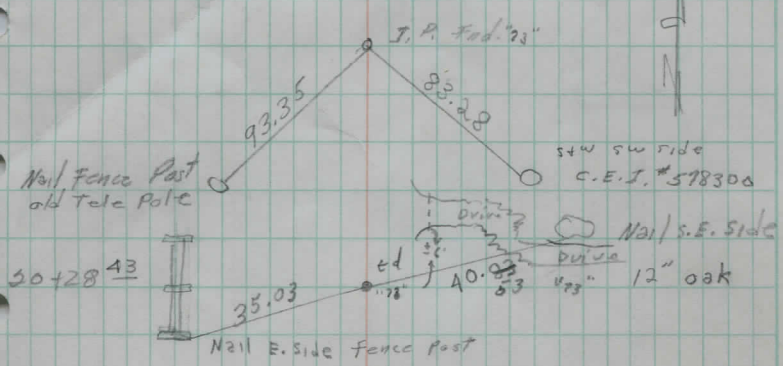 I. P. Fnd. "73"
93.35
83.28
N
Nail Fence Post
old Tele Pole
S+W SW side
C.E.I. #578300
Drive
Nail S.E. Side
Drive
12" oak
"73"
±6'
20+28 43
td
"73"
40.53
35.03
Nail E. Side Fence Post